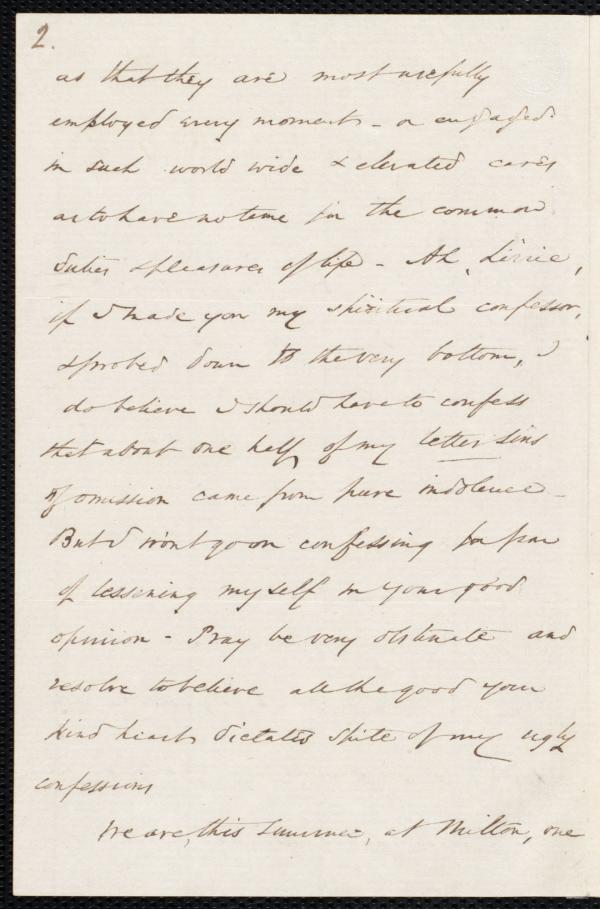 2.
as that they are most usefully
employed every moment - or engaged
in such world wide & elevated cares
as to have no time for the common
duties & pleasures of life - Ah, Lizzie,
if I made you my spiritual confessor,
& probed down to the very bottom, I
do believe I should have to confess
that about one half of my letter sins
of omission came from pure indolence -
But I won't go on confessing for fear
of lessening myself in your good
opinion - Pray be very obstinate and
resolve to believe all the good your
kind heart dictates spite of my ugly
confessions
We are, this summer, at Milton, one